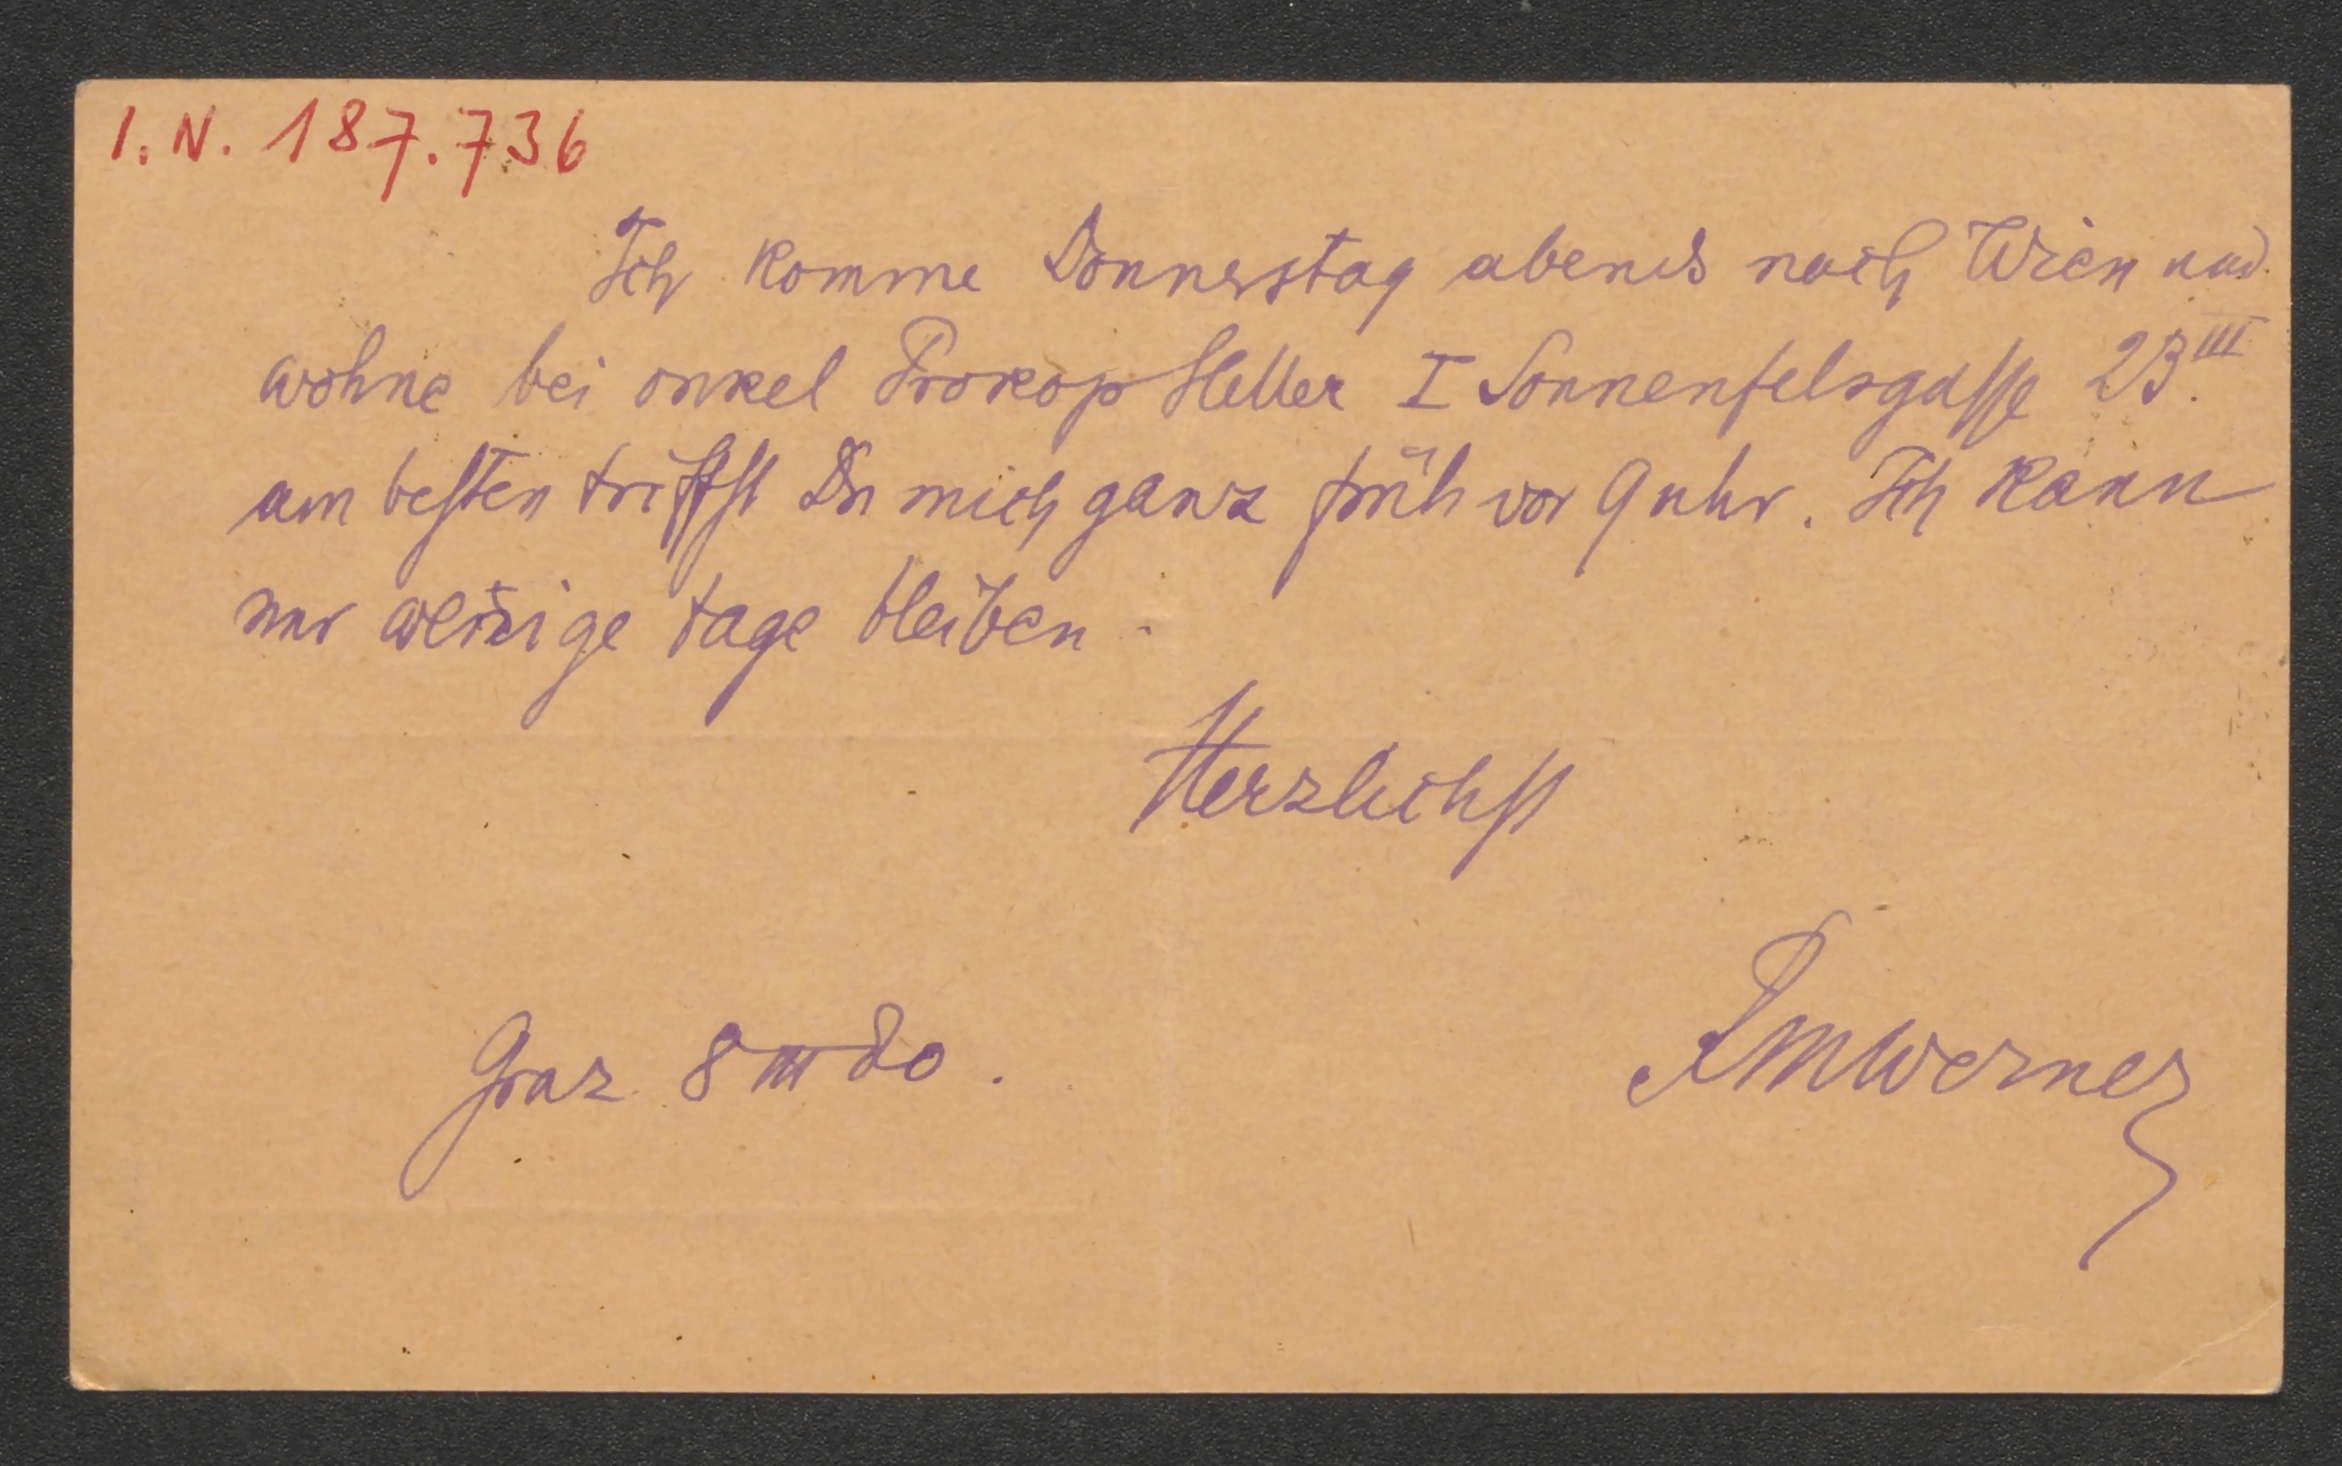 I. N. 187.736
Ich komme Donnerstag abends nach Wien und
wohne bei onkel Prokop Heller I Sonnenfelsgasse 23III.
am besten triffst Du mich ganz früh vor 9 uhr. Ich kann
nur wenige tage bleiben.
Herzlichst
RMWerner
Graz 8 III 80.